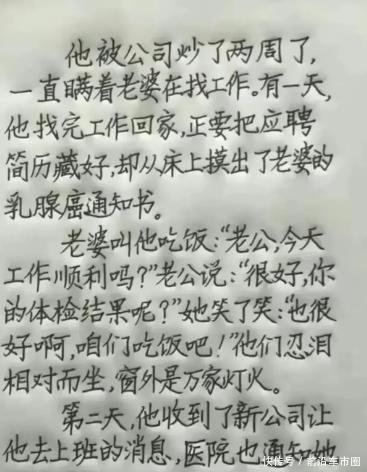 他被公司炒了两周了,
一直瞒着老婆在找工作。有一天,
他找完工作回家,正要把应聘
简历藏好,却从床上摸出了老婆的
乳腺癌通知书。
老婆叫他吃饭:“老公,今天
工作顺利吗?”老公说:“很好,你
的体检结果呢?”她笑了笑:“也很
好啊,咱们吃饭吧!”他们忍泪
相对而坐,窗外是万家灯火。
第二天,他收到了新公司让
他去上班的消息,医院也通知她
快传号/前沿车市圈